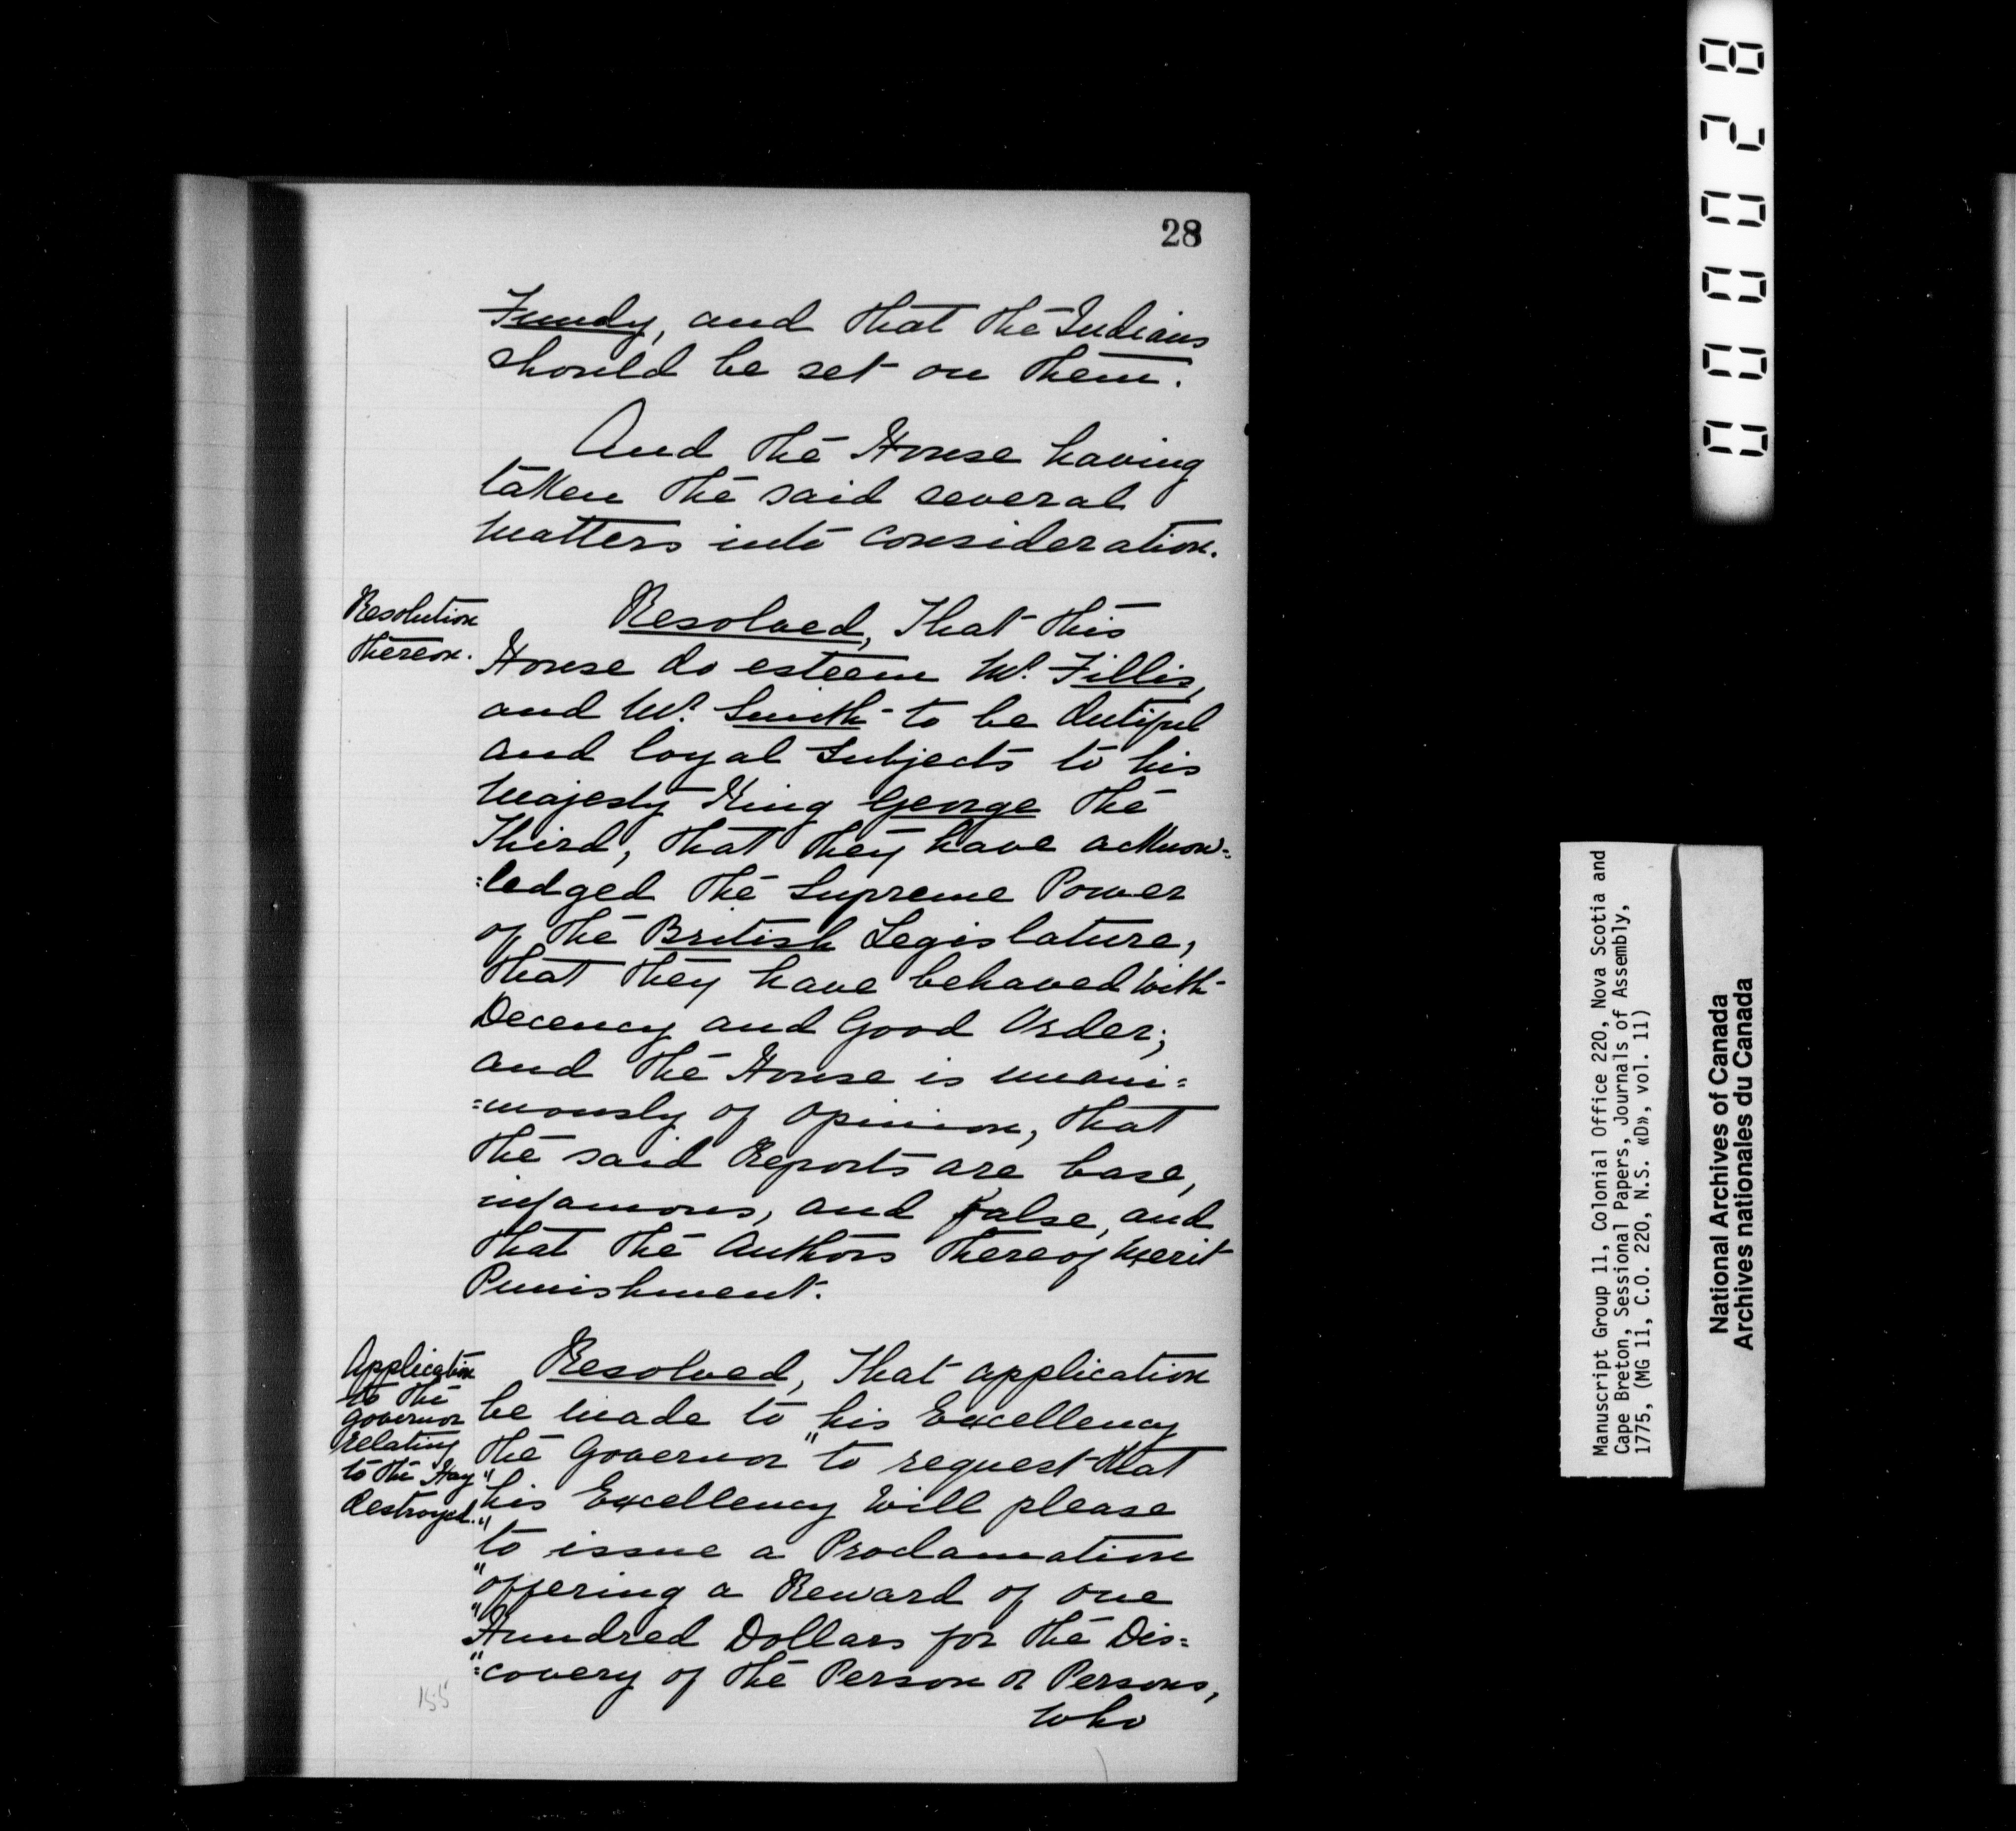 28
Fundy, and that the Indians
should be set on them.
And the House having
taken the said several
Matters into consideration.
Resolution
thereon.
Resolved, That this
House do esteem Mr. Fillis,
and Mr. Smith to be dutiful
and loyal Subjects to his
Majesty King George the
Third, that they have acknow=
=ledged the Supreme Power
of the British Legislature,
that they have behaved with
Decency and Good Order;
and the House is unani=
=mously of Opinion, that
the said Reports are base,
infamous, and false, and
that the Authors thereof Merit
Punishment.
Application
to the
Governor
relating
to the Hay
destroyed.
Resolved, That application
be made to his Excellency
the Governor "to request that
"his Excellency will please
"to issue a Proclamation
"offering a Reward of one
"Hundred Dollars for the Dis=
"=covery of the Person or Persons,
who
155
000028
Manuscript Group 11, Colonial Office 220, Nova Scotia and
Cape Breton, Sessional Papers, Journals of Assembly,
1775, (MG 11, C.O. 220, N.S. «D», vol. 11)
National Archives of Canada
Archives nationales du Canada